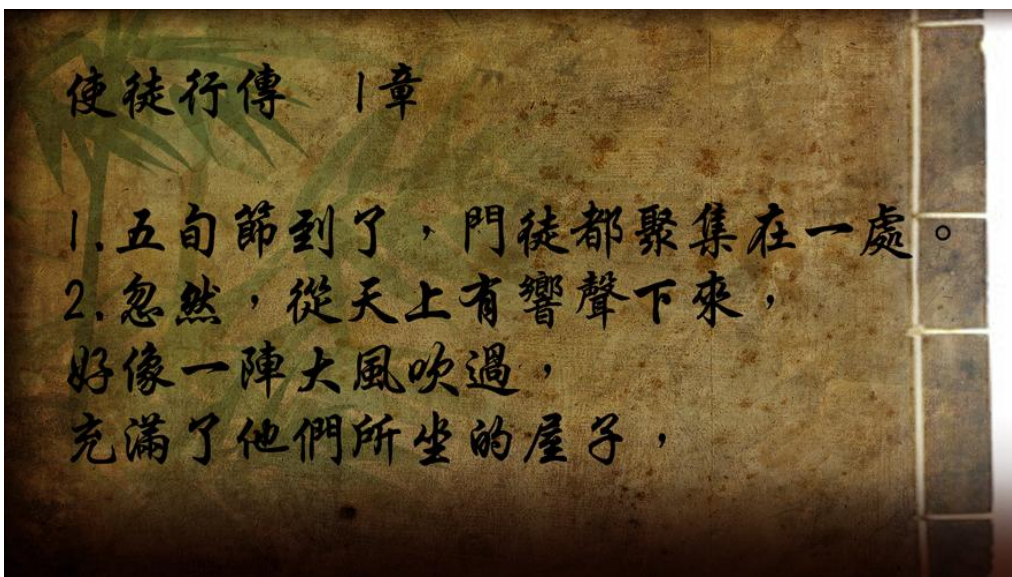 使徒行傳　1章
1.五旬節到了，門徒都聚集在一處。
2.忽然，從天上有響聲下來，
好像一陣大風吹過，
充滿了他們所坐的屋子，